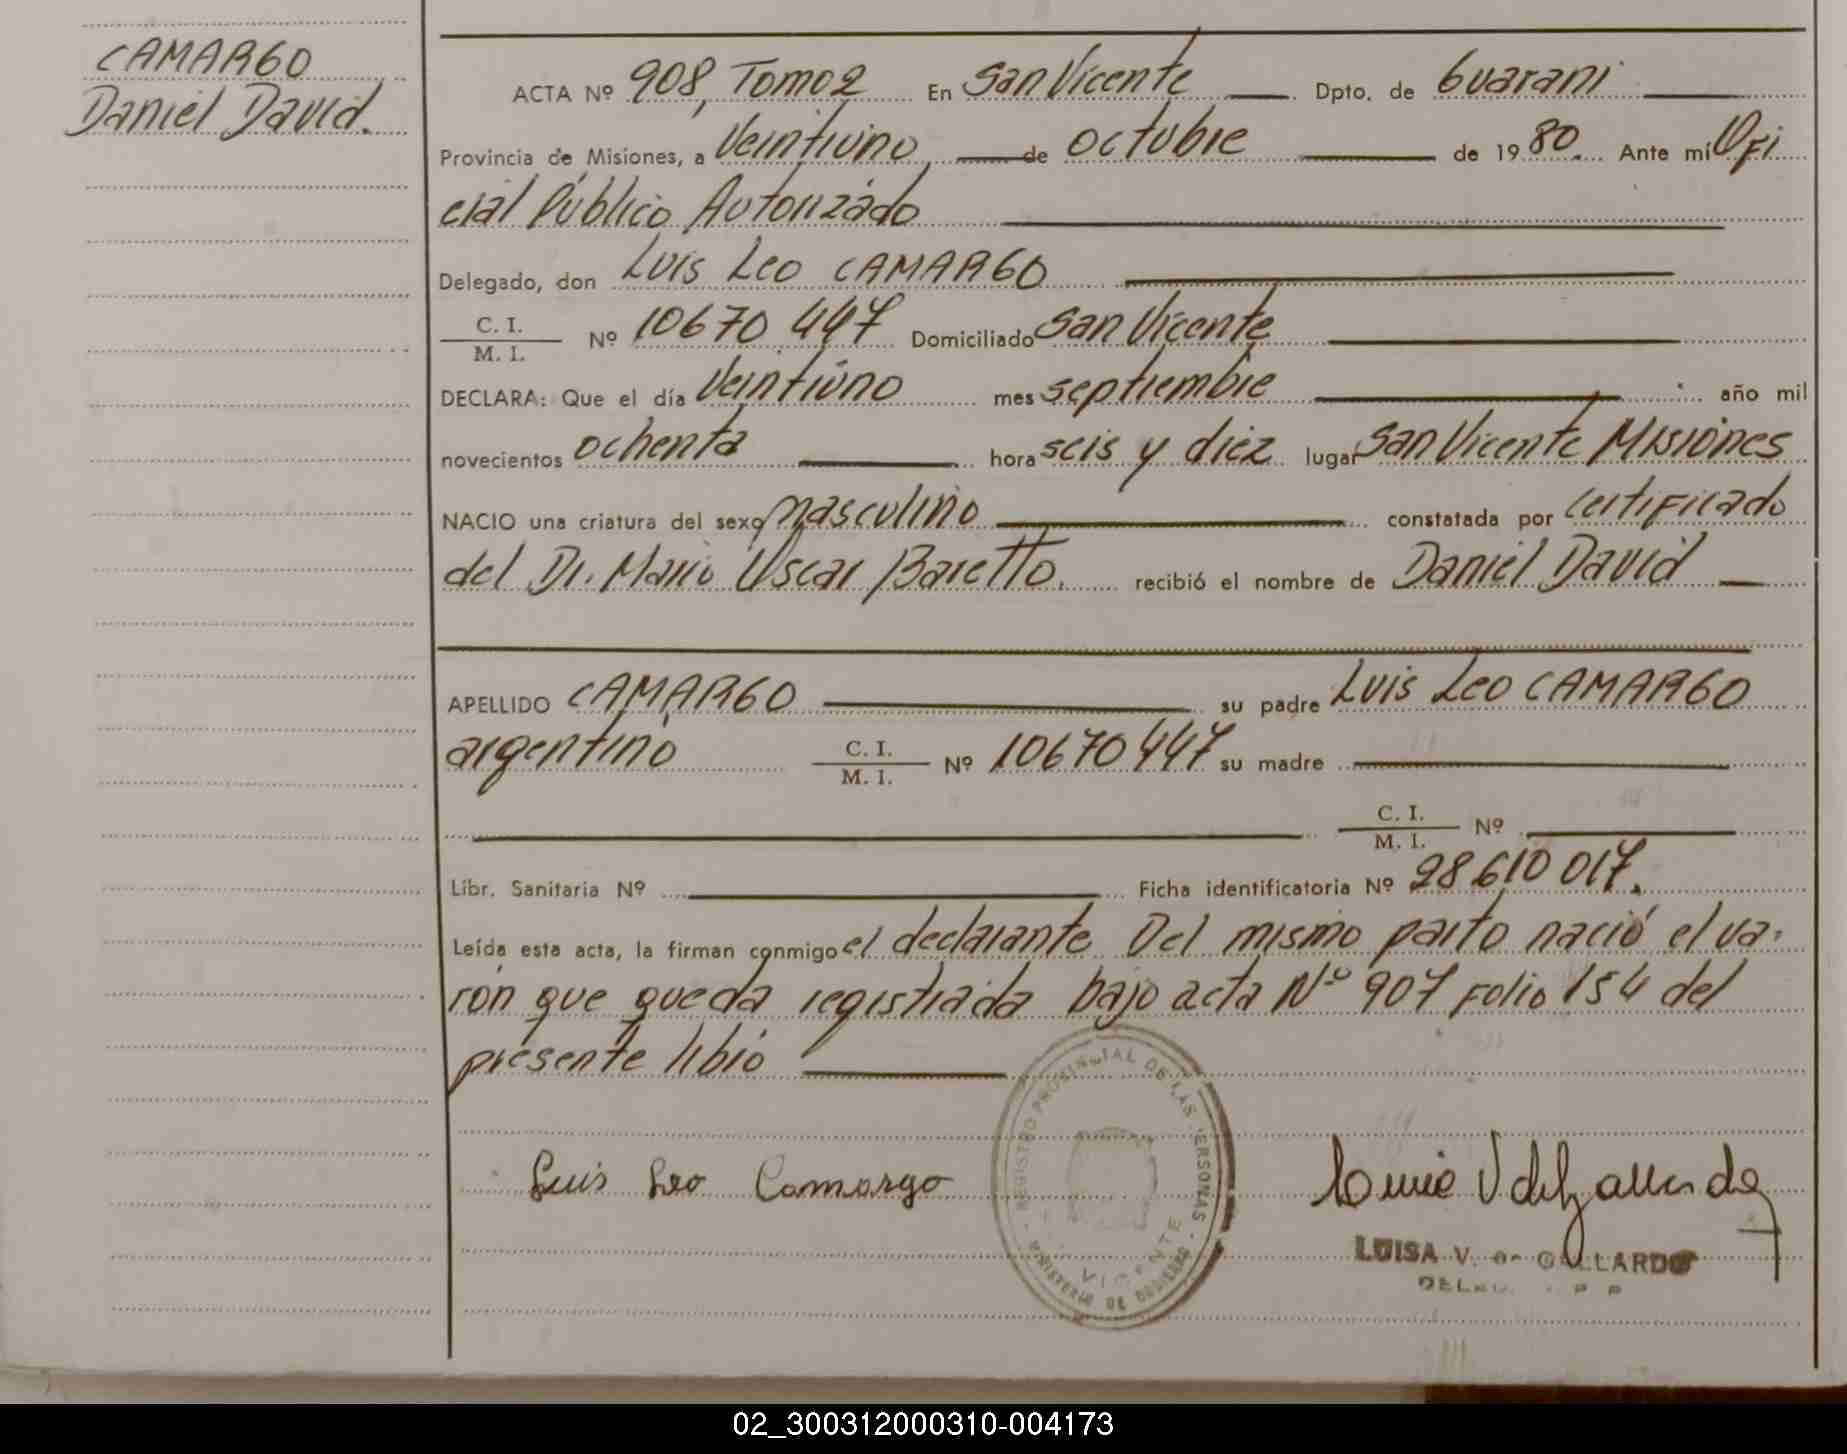 CAMARGO
Daniel David.
ACTA Nº 908, Tomo 2 En San Vicente Dpto. de Guarani
Provincia de Misiones, a Veintiuno de octubre de 1980. Ante mí Ofi
cial Público Autorizado
Delegado, don Luis Leo CAMARGO
C. I.
M. I. Nº 10670.447 Domiciliado San Vicente
DECLARA: Que el día Veintiuno mes septiembre año mil
novecientos ochenta hora seis y diez lugar San Vicente Misiones
NACIO una criatura del sexo masculino constatada por certificado
del Dr. Mario Oscar Baretto. recibió el nombre de Daniel David
APELLIDO CAMARGO su padre Luis Leo CAMARGO
argentino C. I.
M. I. Nº 10670447 su madre
C. I.
M. I. Nº
Libr. Sanitaria Nº Ficha identificatoria Nº 28610017.
Leída esta acta, la firman conmigo el declarante Del mismo parto nació el va-
rón que queda registrada bajo acta Nº 907 Folio 154 del
presente libro
REGISTRO PROVINCIAL DE LAS PERSONAS
VICENTE
MINISTERIO DE GOBIERNO
Luis Leo Camargo
LUISA V. de GALLARDO
02_300312000310-004173